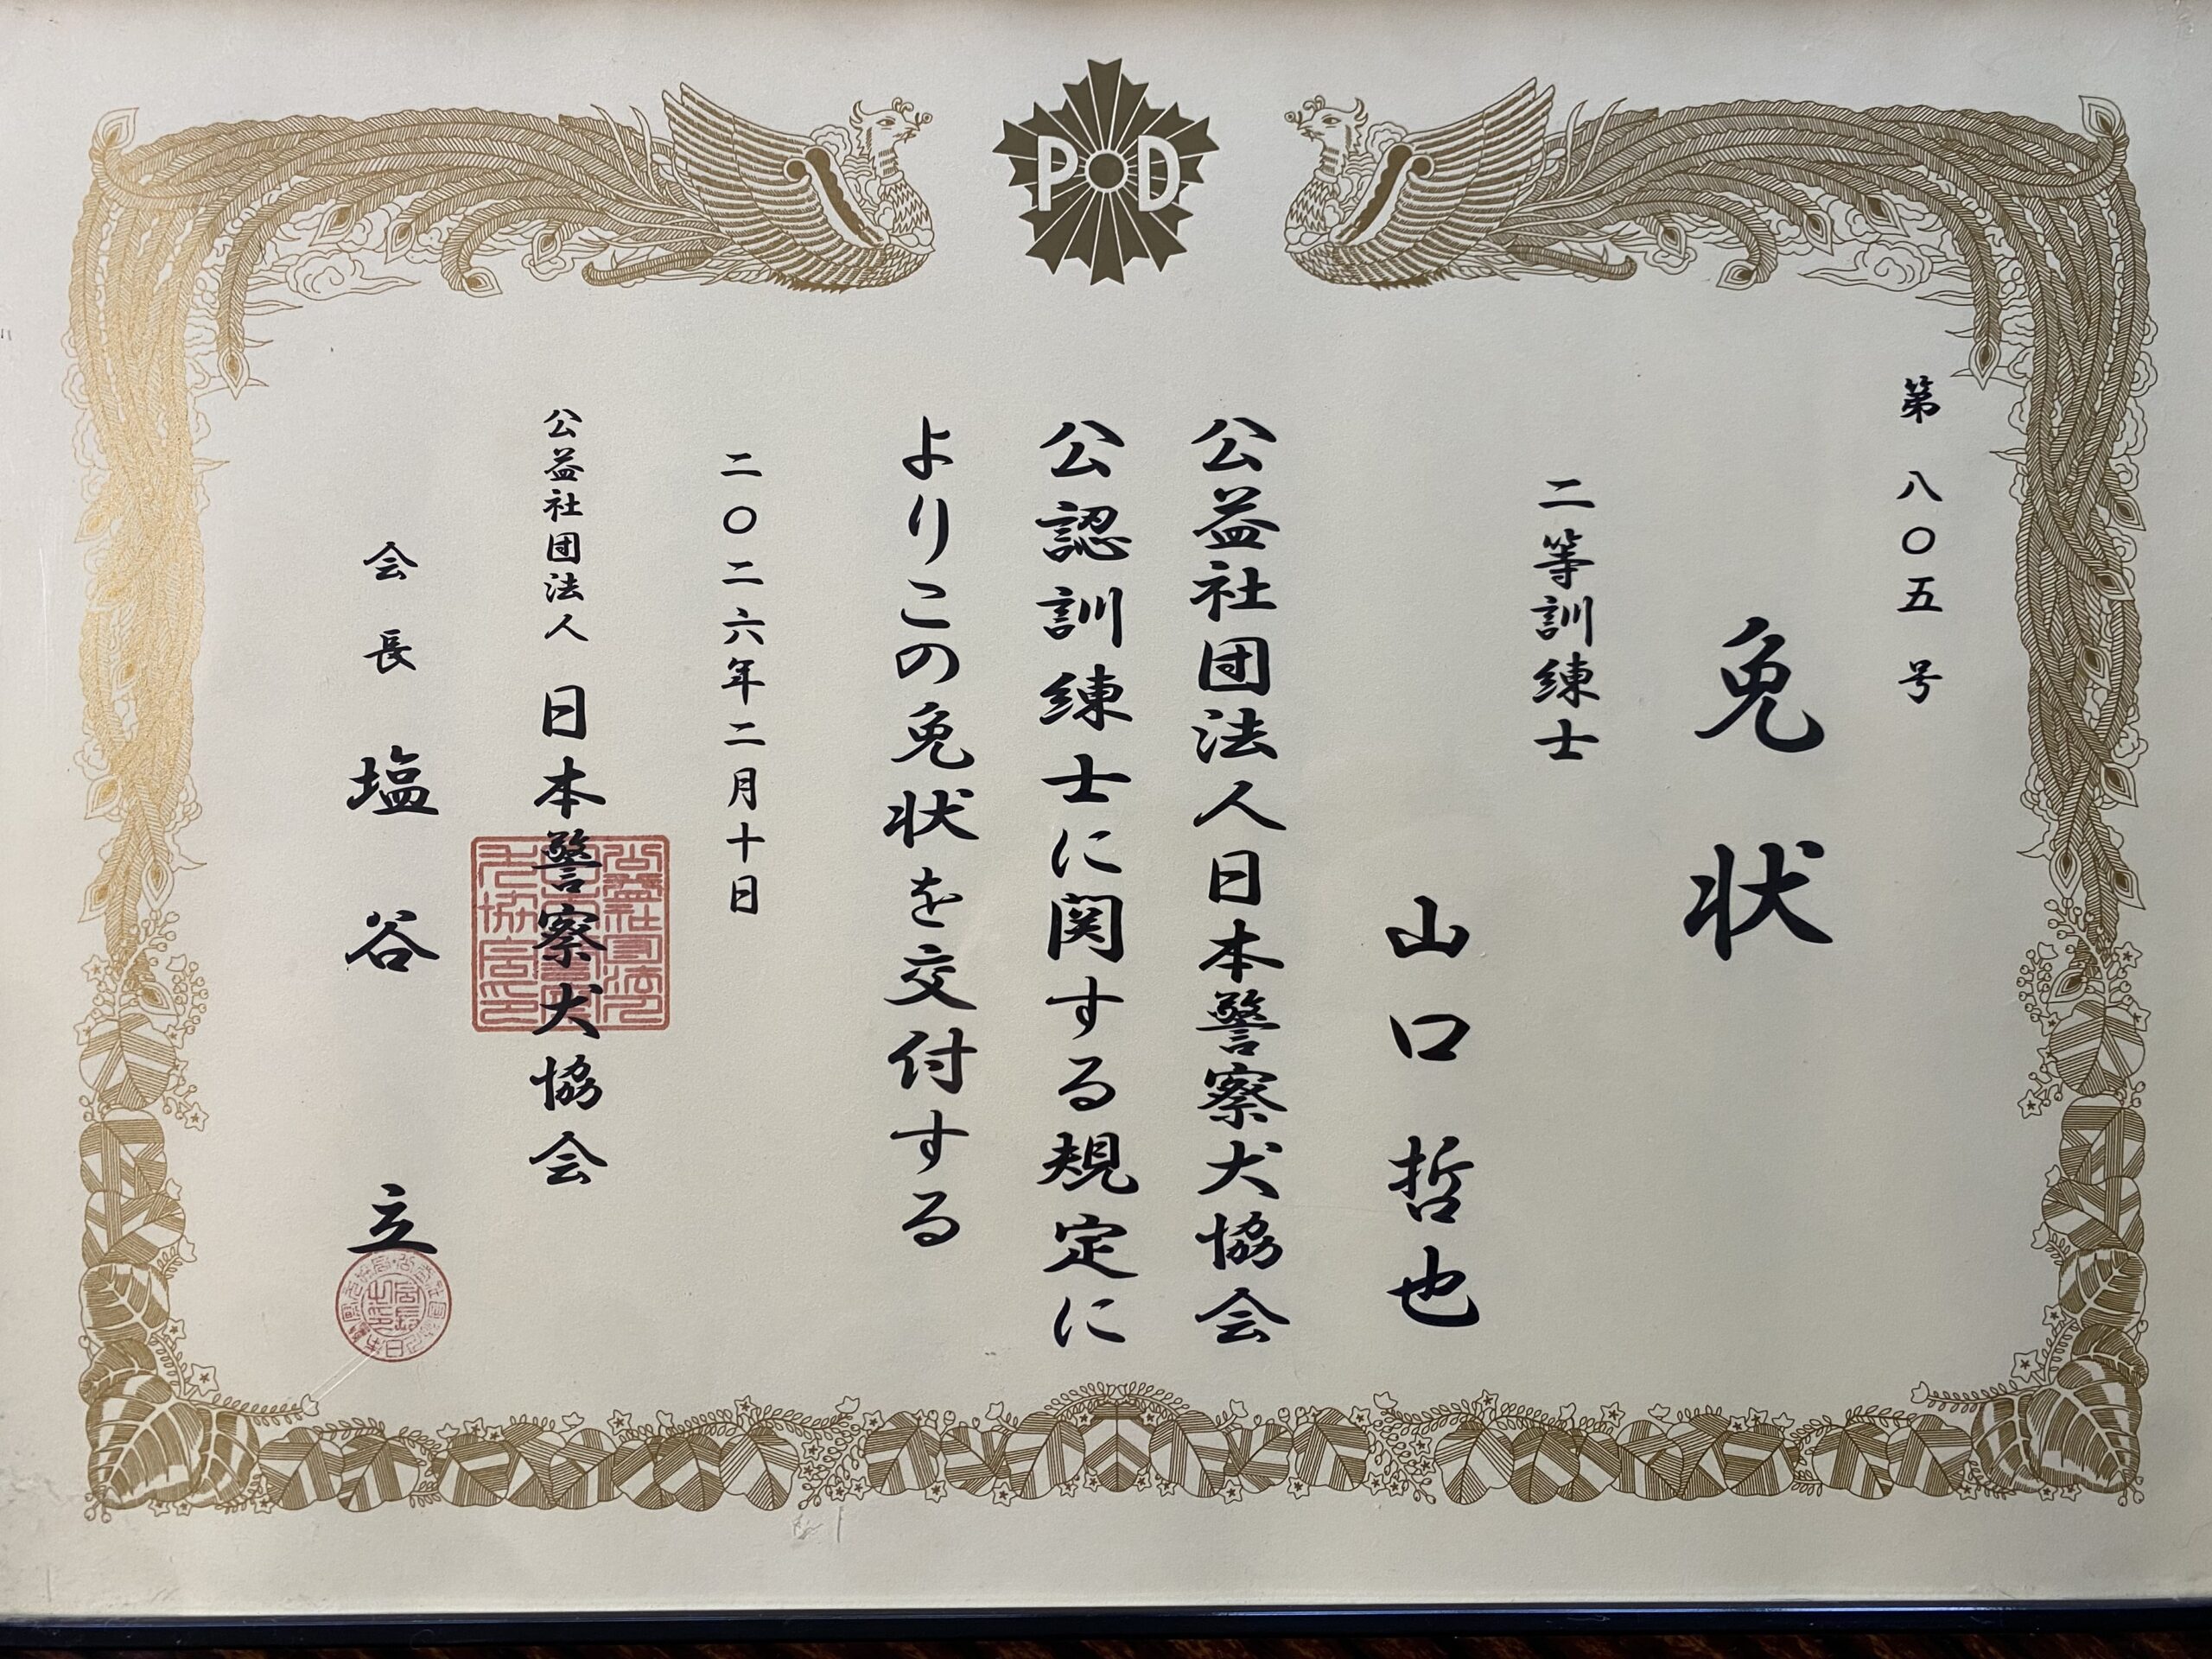 P D
第八〇五号
免状
二等訓練士
山口哲也
公益社団法人日本警察犬協会
公認訓練士に関する規定に
よりこの免状を交付する
二〇二六年二月十日
公益社団法人 日本警察犬協会
会長 塩谷 立